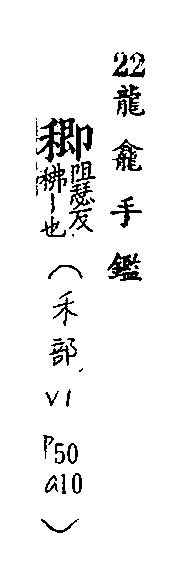 22龍龕手鑑
阻瑟反
丨也
(禾部, VI P50 a10)